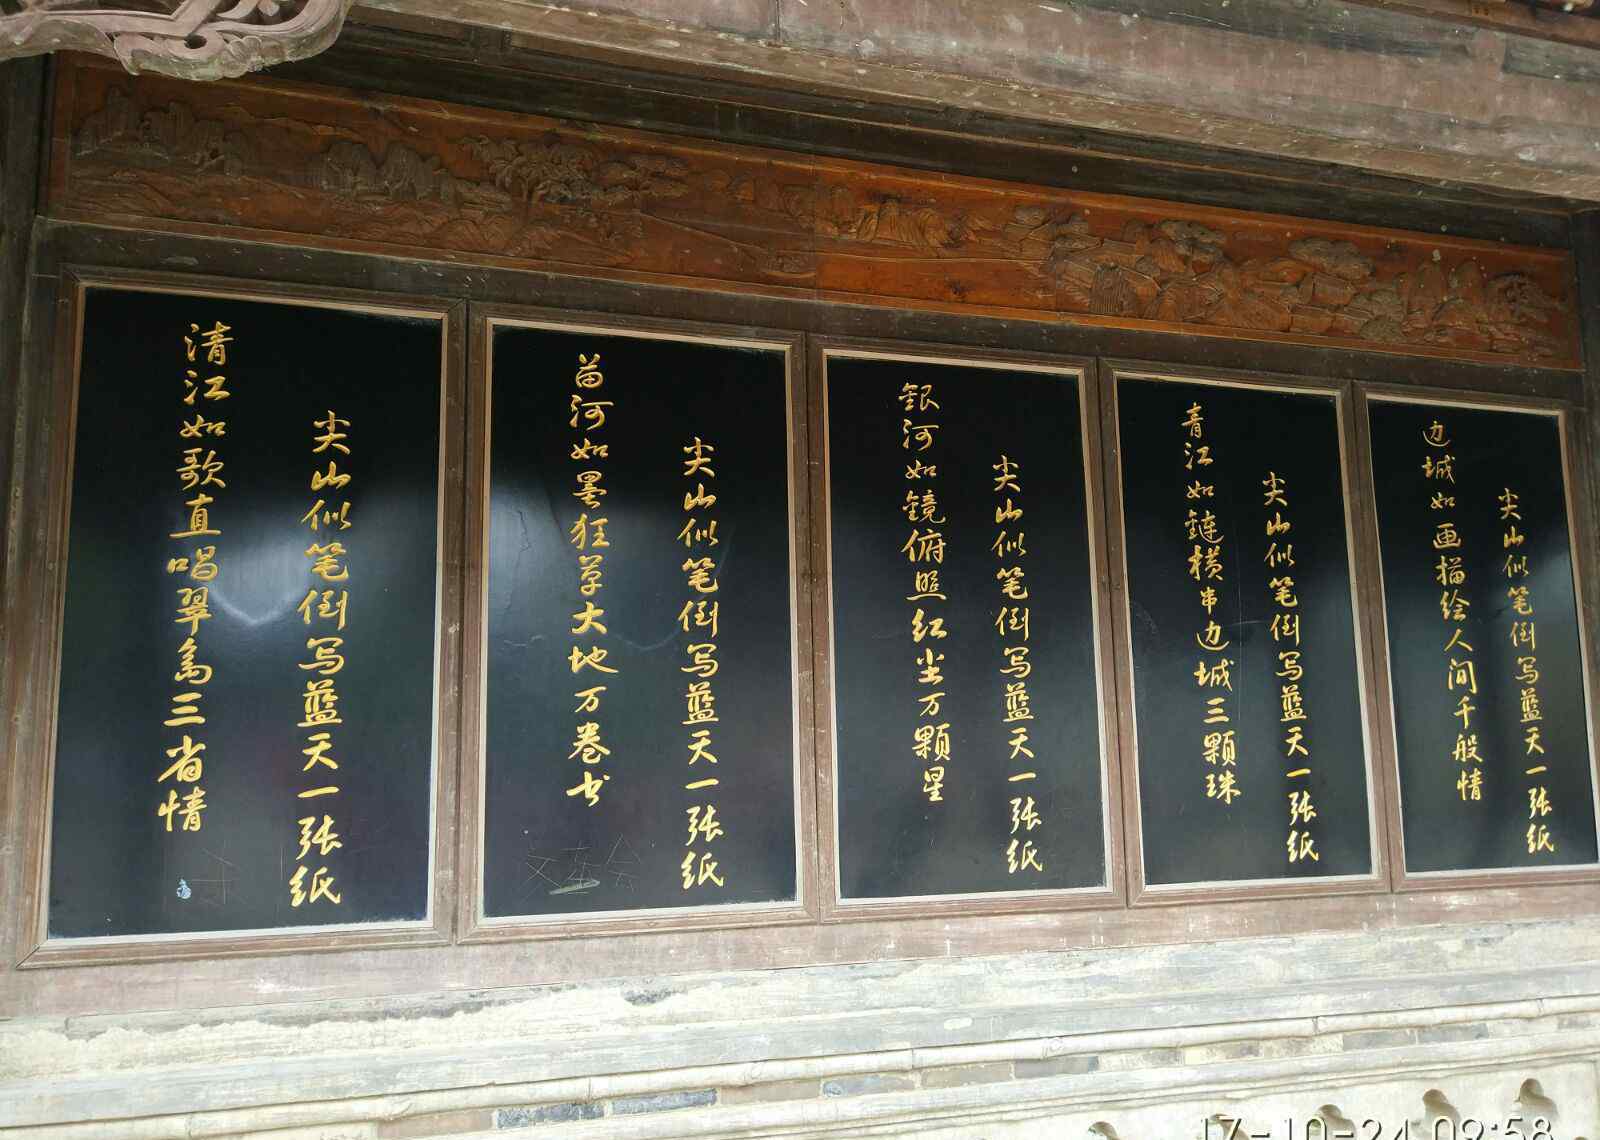 尖山似笔倒写蓝天一张纸
边城如画描绘人间千般情
尖山似笔倒写蓝天一张纸
青江如鏈横串边城三颗珠
尖山似笔倒写蓝天一张纸
銀河如鏡俯照红尘万颗星
尖山似笔倒写蓝天一张纸
苗河如墨狂草大地万卷书
尖山似笔倒写蓝天一张纸
清江如歌直唱翠岛三省情
17-10-24 09:58